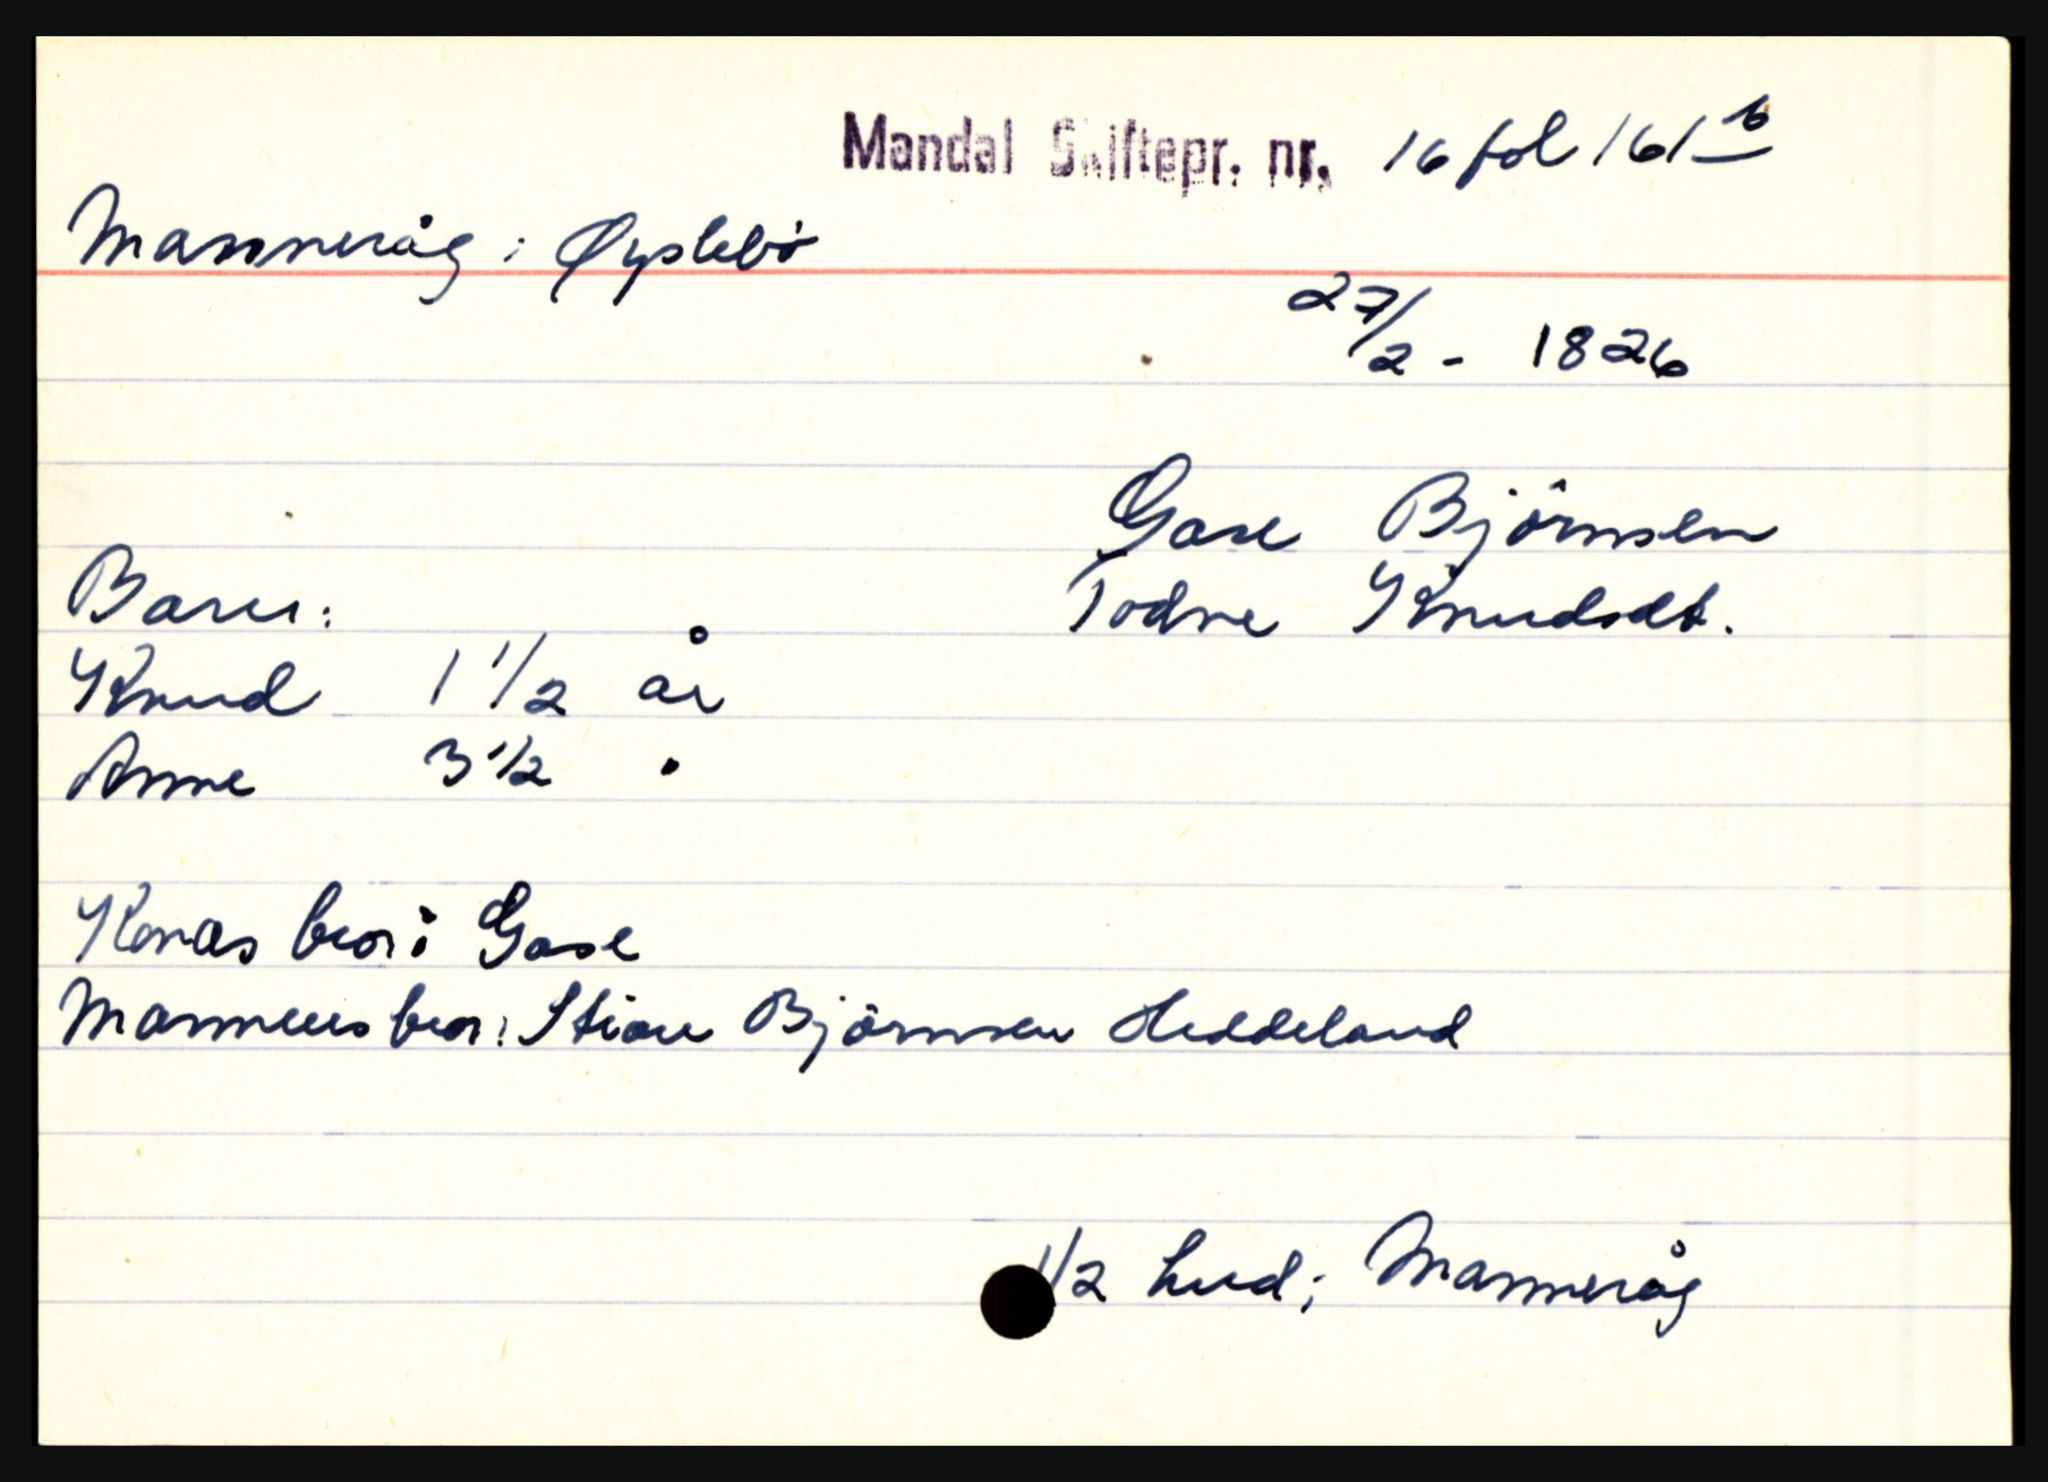 Mandal Skiftepr. nr. 16 fol 161 b
Manneråg i Øyslebø
27/2 - 1826
Gase Björnsen
Barn: Todne Knudsdt.
Knud 1 1/2 år
Anne 3 1/2 "
Konas bror: Gase
Mannens bror: Stian Björnsen Heddeland
1/2 hud i Manneråg